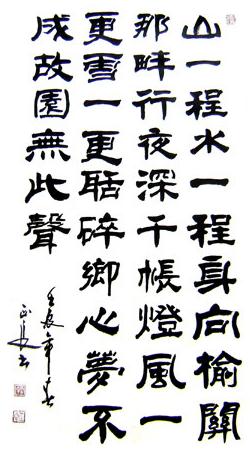 山一程水一程身向榆關
那畔行夜深千帳燈風一
更雪一更聒碎鄉心夢不
成故園無此聲
壬辰年春